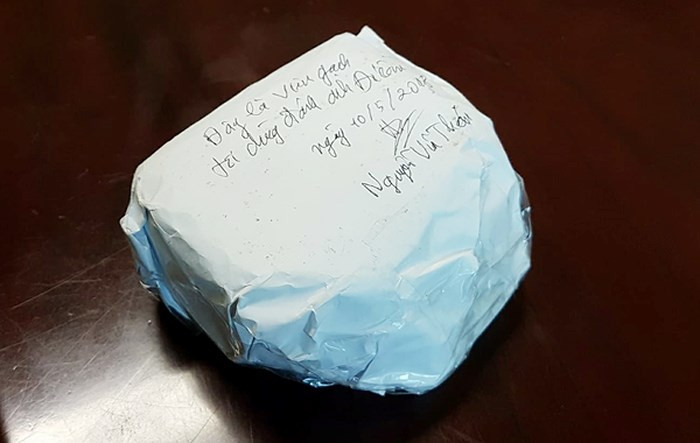 Đây là viên gạch
tôi dùng đánh anh
ngày 10/5/20
Nguyễn Văn Thiên